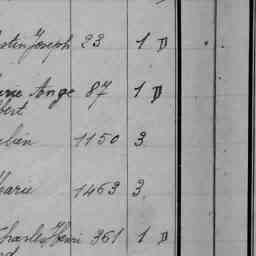 Joseph 23 1 D
Ange 87 1 D
bert
1150 3
Marie 1463 3
Charles Henri 361 1 D